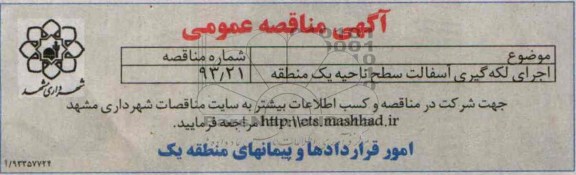 آگهی مناقصه عمومی
شهرداری مشهد
موضوع شماره مناقصه
اجرای لکه گیری آسفالت سطح ناحیه یک منطقه ۹۳/۲۱
جهت شرکت در مناقصه و کسب اطلاعات بیشتر به سایت مناقصات شهرداری مشهد
http://ets.mashhad.ir مراجعه فرمایید.
امور قراردادها و پیمانهای منطقه یک
۱/۹۳۳۵۷۷۲۴